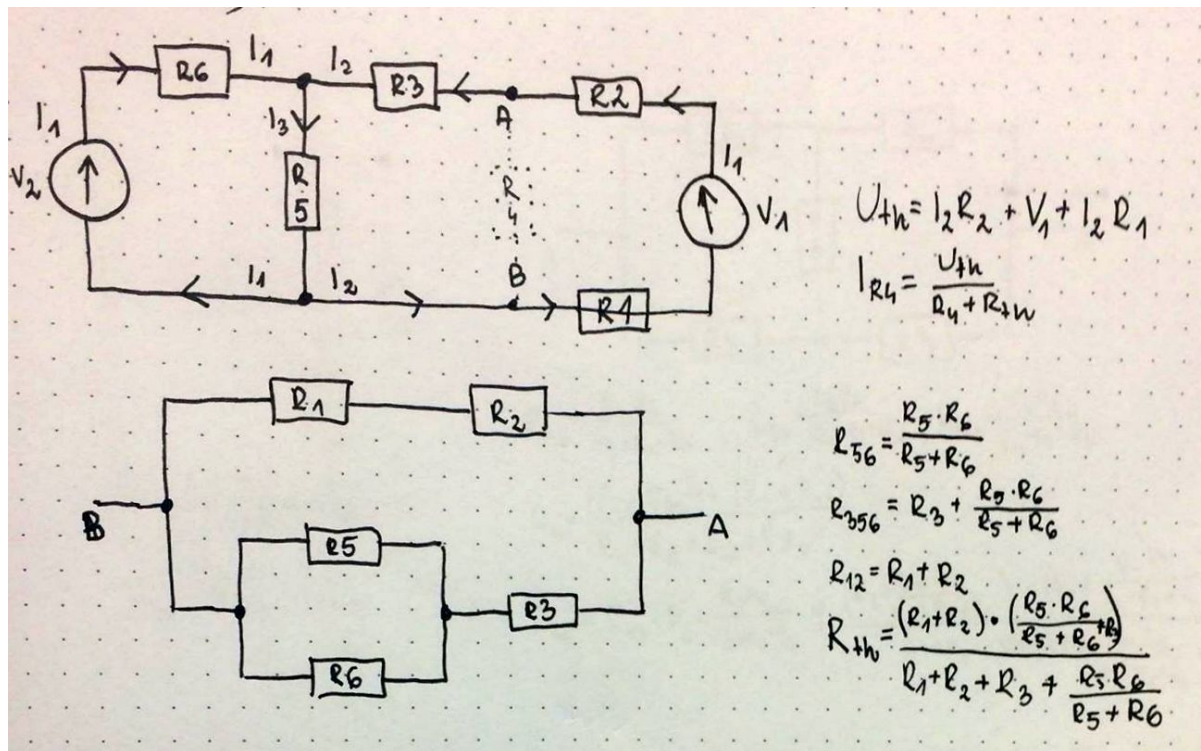 I1 I2
R6 R3 R2
A
I1 I3 I1
V2 R5 R4 V1
B
I1 I2 R1
Uth = I2R2 + V1 + I2R1
IR4 = Uth / (R4 + Rth)
R1 R2
B A
R5
R3
R6
R56 = R5·R6 / (R5+R6)
R356 = R3 + R5·R6 / (R5+R6)
R12 = R1 + R2
Rth = (R1+R2)·(R5·R6 / (R5+R6) + R3) / (R1+R2+R3 + R5·R6 / (R5+R6))